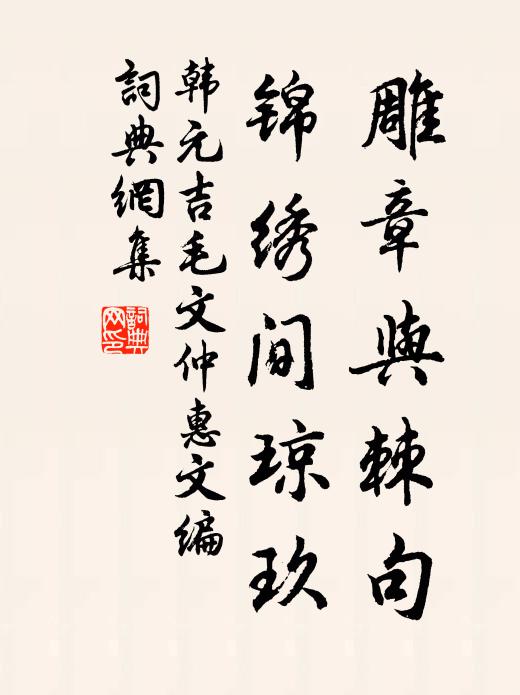 雕章與棘句
锦绣间琼玖
韩元吉毛文仲惠文编
詞典網集
詞典
网印